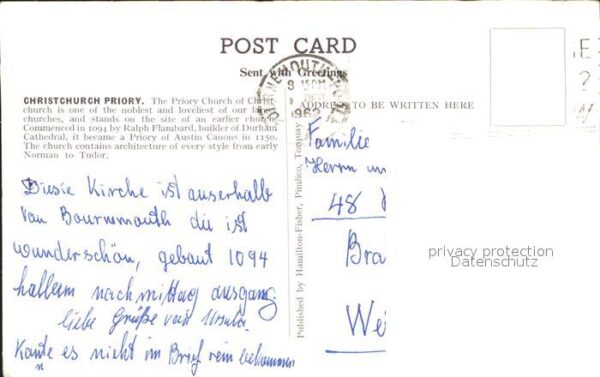 POST CARD
Sent with Greetings
CHRISTCHURCH PRIORY. The Priory Church of Christ-
church is one of the noblest and loveliest of our
churches, and stands on the site of an earlier church
Commenced in 1094 by Ralph Flambard, builder of Durham
Cathedral, it became a Priory of Austin Canons in 1150.
The church contains architecture of every style from early
Norman to Tudor.
Diesie Kirche ist auserhalb
von Bournmouth die ist
wunderschön, gebaut 1094
nachmittag ausgang.
liebe Grüße von Ursula.
Konte es nicht im Brief rein bekommen
Published by Hamilton-Fisher, Pimlico, Torquay
BOURNEMOUTH
9 15 PM
1962
ADDRESS TO BE WRITTEN HERE
Familie
Herrn un
48
Bra
Wei
privacy protection
Datenschutz
E
?